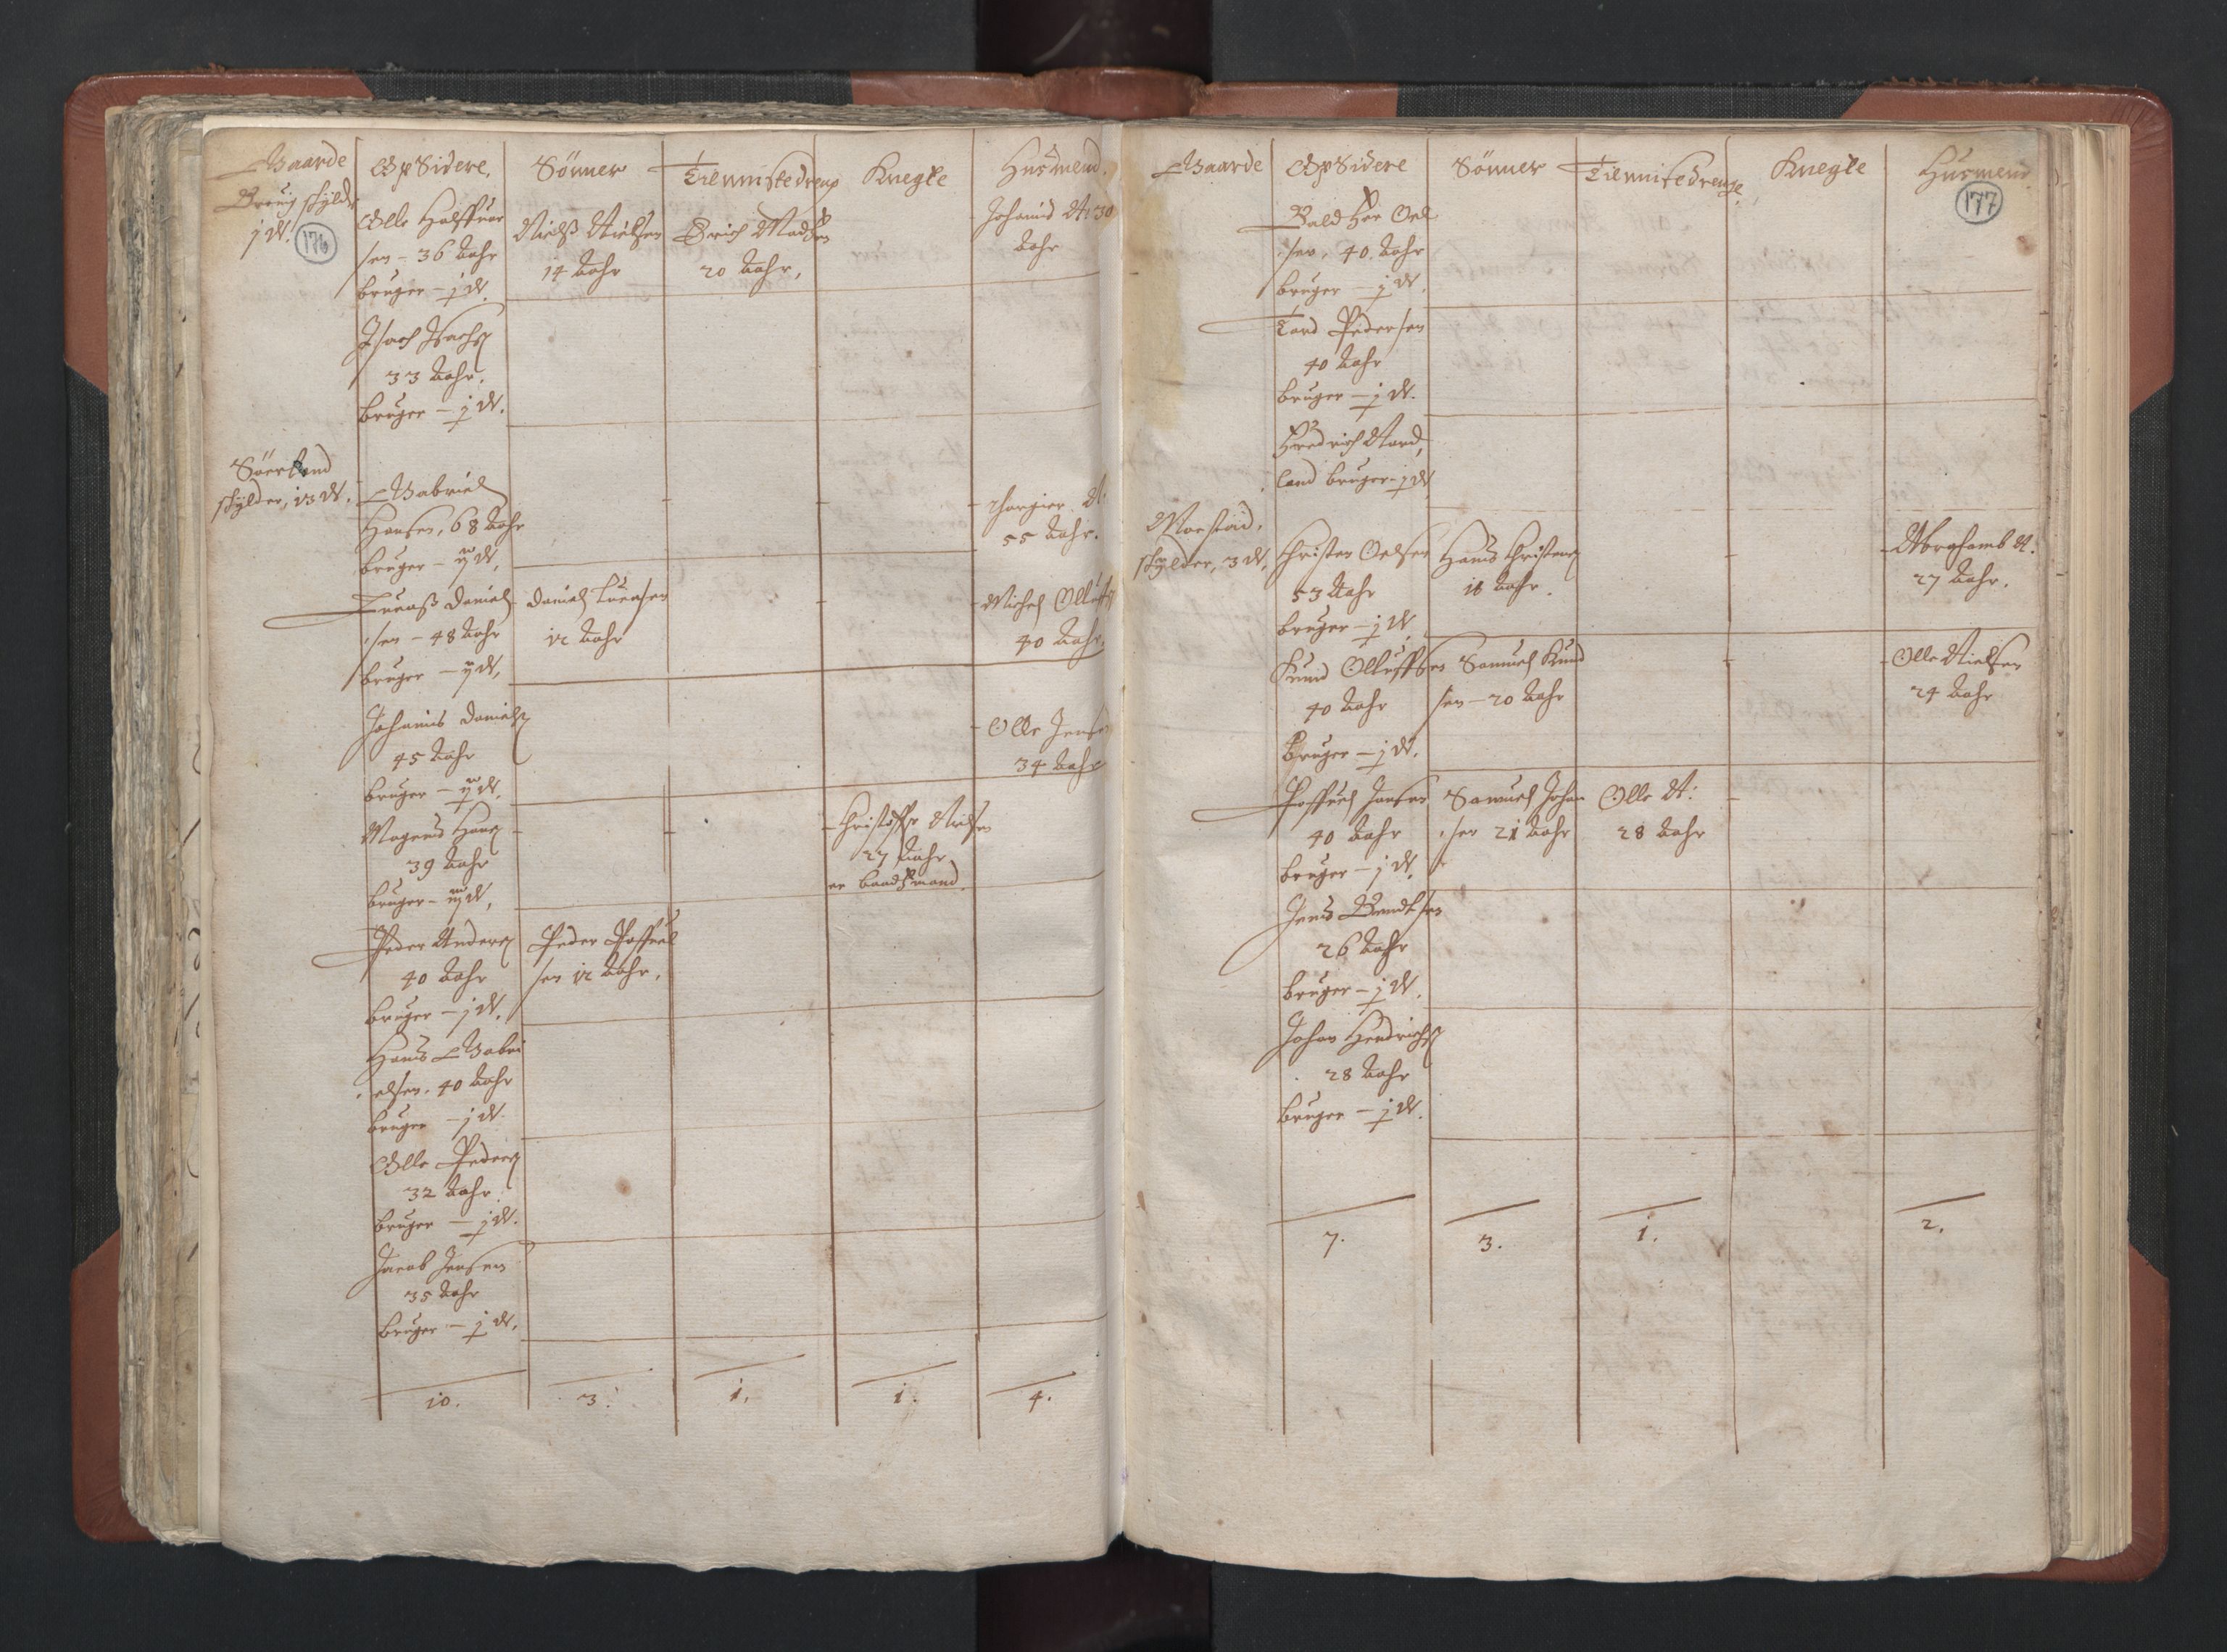 Gaarde
OpSidere,
Sönner
Tienniste drenge
Knegte
Husmend.
skylder
j W.
176
Olle Halffuor
sen - 36 Aahr
bruger - j W.
Nielß Nielsen
14 Aahr
Erich Madsen
20 Aahr,
Johanis N: 30
Aahr
Isach Isachs
33 Aahr.
bruger - j W.
skylder, 13 W.
Gabriel
Hansen, 68 Aahr
bruger - ij W,
55 Aahr.
Daniel
sen - 48 Aahr
bruger - ij W,
Daniel
12 Aahr
Michel Olluff
40 Aahr.
Johanis Daniels
45 Aahr
bruger - ij W.
Olle Jensen
34 Aahr
Mogens Hans
39 Aahr
bruger - iij W,
Christoffer Nielsen
27 Aahr
er baadzmand.
Peder Anders
40 Aahr
bruger - j W.
Peder Poffuel
sen 12 Aahr,
Hans Gabri
elsen. 40 Aahr
bruger - j W.
Olle Peders
32 Aahr
bruger - j W.
Jacob Jensen
35 Aahr
bruger - j W.
10.
3.
1.
1.
4.
Gaarde
OpSidere
Sönner
Tienniste drenge,
Knegte
Husmend
177
Oel
sen, 40. Aahr
bruger - j W.
Tord Pedersen
40 Aahr
bruger - j W.
Hendrich Nord
land bruger - j W
skylder, 3 W,
Christen Oelsen
53 Aahr
bruger - j W,
Hans Christens
18 Aahr.
Abrahamb N.
27 Aahr.
Knud Olluffsen
40 Aahr
bruger - j W.
Samuel Knud
sen - 20 Aahr
Olle Nielsen
24 Aahr
Poffuel Jensen
40 Aahr
bruger - j W.
Samuel Johan
sen 21 Aahr
Olle N:
28 Aahr
Jens Bendtsen
26 Aahr
bruger - j W.
Johan Hendrichs
28 Aahr
bruger - j W.
7.
3.
1.
2.